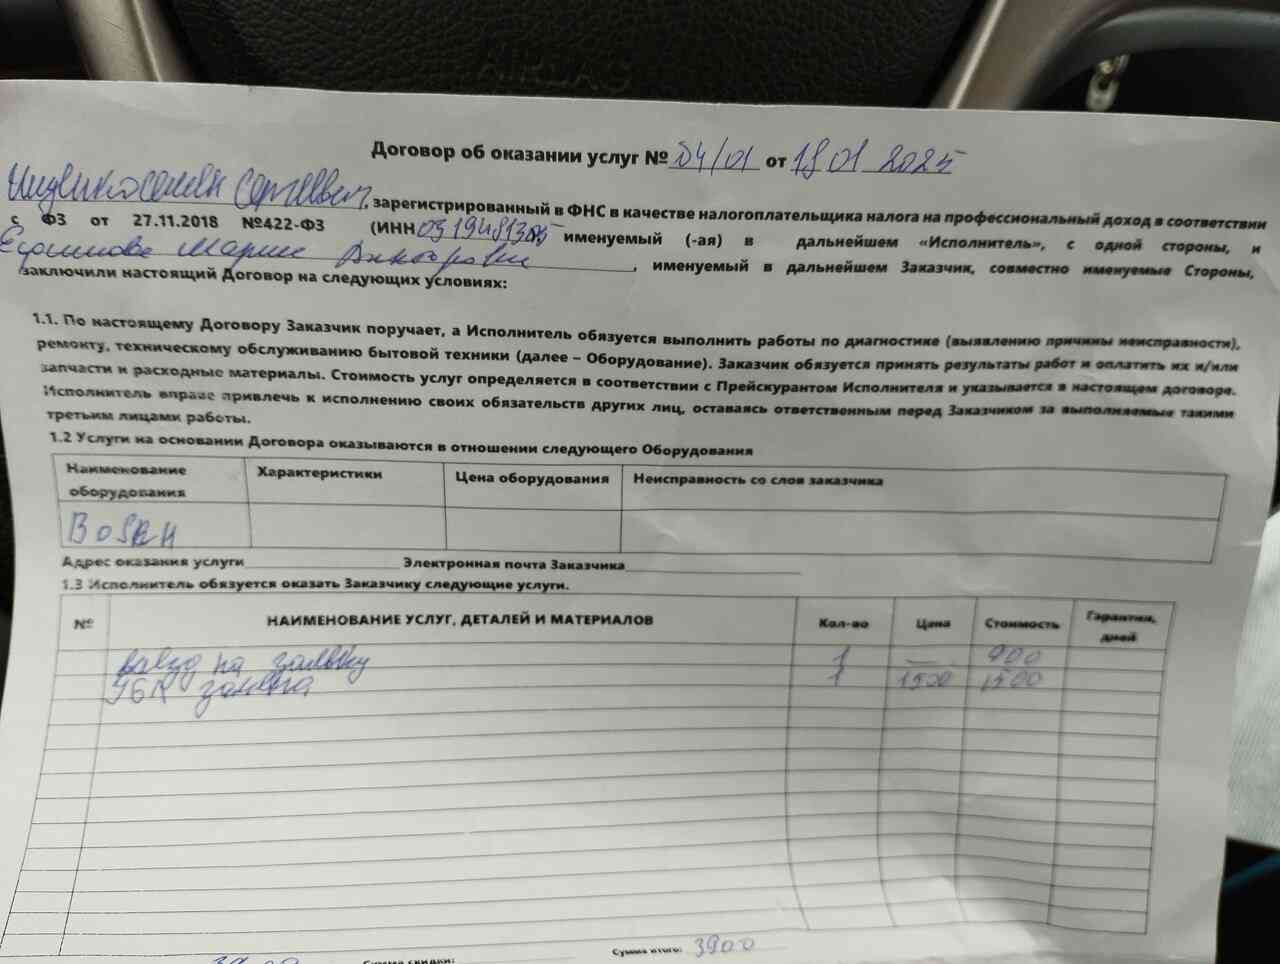 AIRBAG
Договор об оказании услуг № 04/01 от 18 01 2025
Сергеевич, зарегистрированный в ФНС в качестве налогоплательщика налога на профессиональный доход в соответствии
с ФЗ от 27.11.2018 №422-ФЗ (ИНН именуемый (-ая) в дальнейшем «Исполнитель», с одной стороны, и
Мария Викторовна, именуемый в дальнейшем Заказчик, совместно именуемые Стороны,
заключили настоящий Договор на следующих условиях:
1.1. По настоящему Договору Заказчик поручает, а Исполнитель обязуется выполнить работы по диагностике (выявлению причины неисправности),
ремонту, техническому обслуживанию бытовой техники (далее – Оборудование). Заказчик обязуется принять результаты работ и оплатить их и/или
запчасти и расходные материалы. Стоимость услуг определяется в соответствии с Прейскурантом Исполнителя и указывается в настоящем договоре.
Исполнитель вправе привлечь к исполнению своих обязательств других лиц, оставаясь ответственным перед Заказчиком за выполняемые такими
третьим лицами работы.
1.2 Услуги на основании Договора оказываются в отношении следующего Оборудования
Наименование оборудования Характеристики Цена оборудования Неисправность со слов заказчика
BOSCH
Адрес оказания услуги Электронная почта Заказчика
1.3 Исполнитель обязуется оказать Заказчику следующие услуги.
№ НАИМЕНОВАНИЕ УСЛУГ, ДЕТАЛЕЙ И МАТЕРИАЛОВ Кол-во Цена Стоимость Гарантия, дней
выезд на заявку 1 — 900
замена 1 1500 1500
Сумма итого: 3900
Сумма скидки: